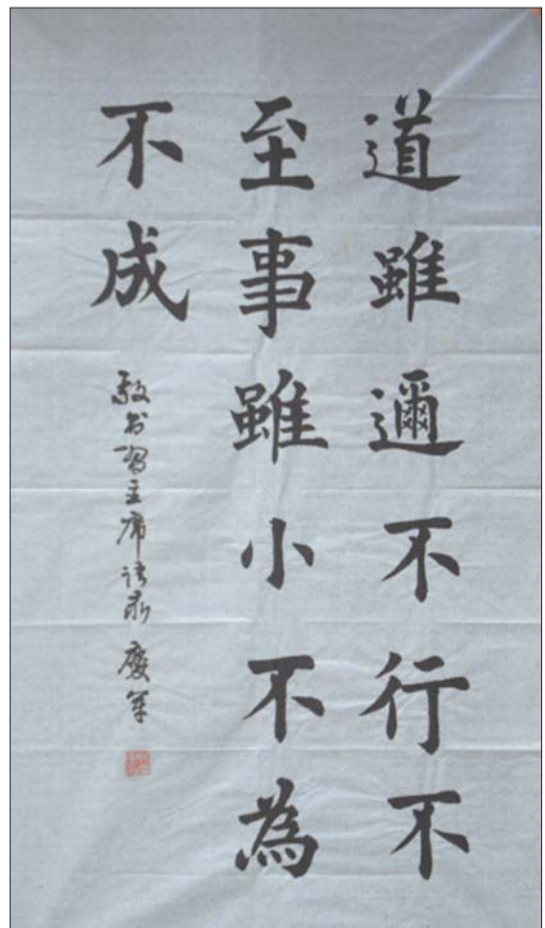 道雖邇不行不
至事雖小不為
不成
敬书习主席语录 慶軍